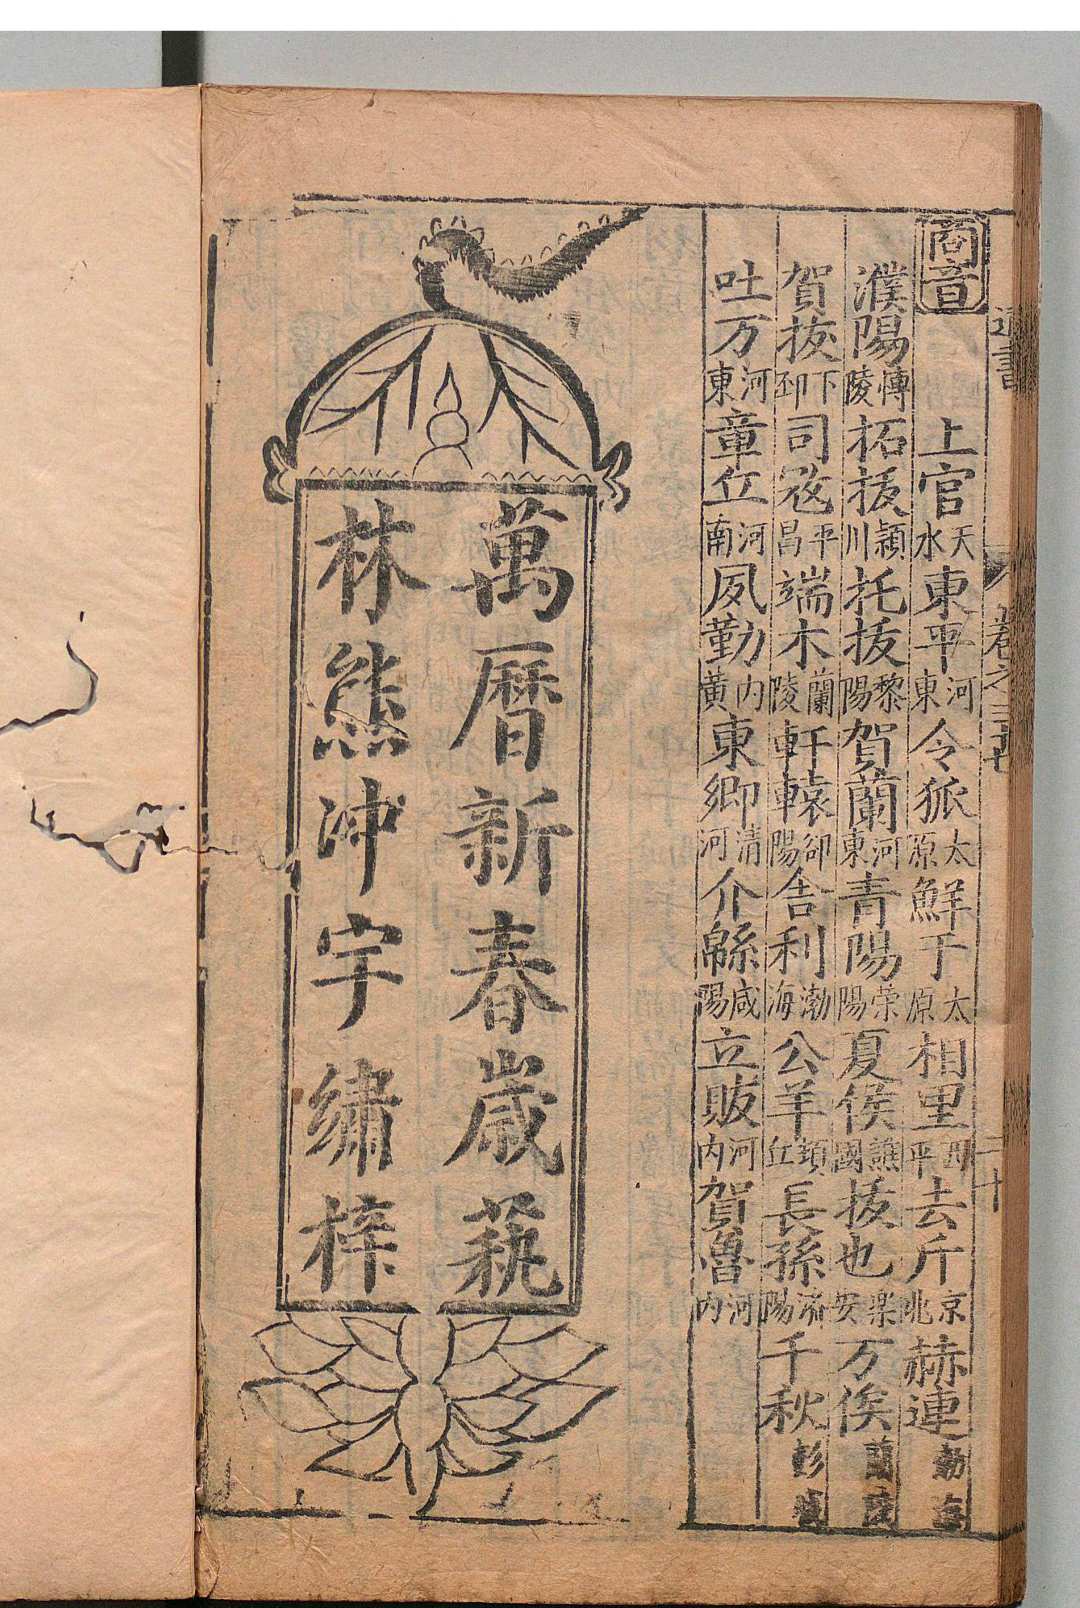 通書 卷之三十廿 二十
商音
上官天水 東平河東 令狐太原 鮮于太原 相里西平 去斤京兆 赫連勃海
濮陽博陵 拓拔潁川 托拔黎陽 賀蘭河東 青陽榮陽 夏侯譙國 拔也樂安 万俟蘭
賀拔下邳 司宼平昌 端木蘭陵 軒轅郃陽 舍利渤海 公羊頊丘 長孫濟陽 千秋彭
吐万河東 章丘河南 夙勤内黃 東鄉清河 介綿咸陽 立販河内 賀魯河内
萬曆新春歲蓺
林熊冲宇繡梓